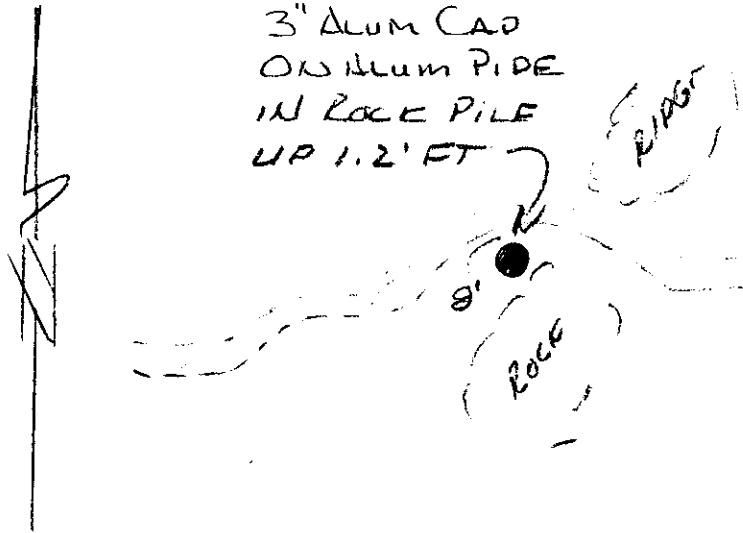 3" ALUM CAP
ON ALUM PIPE
IN ROCK PILE
UP 1.2' FT
RIDGE
2'
ROCK
N